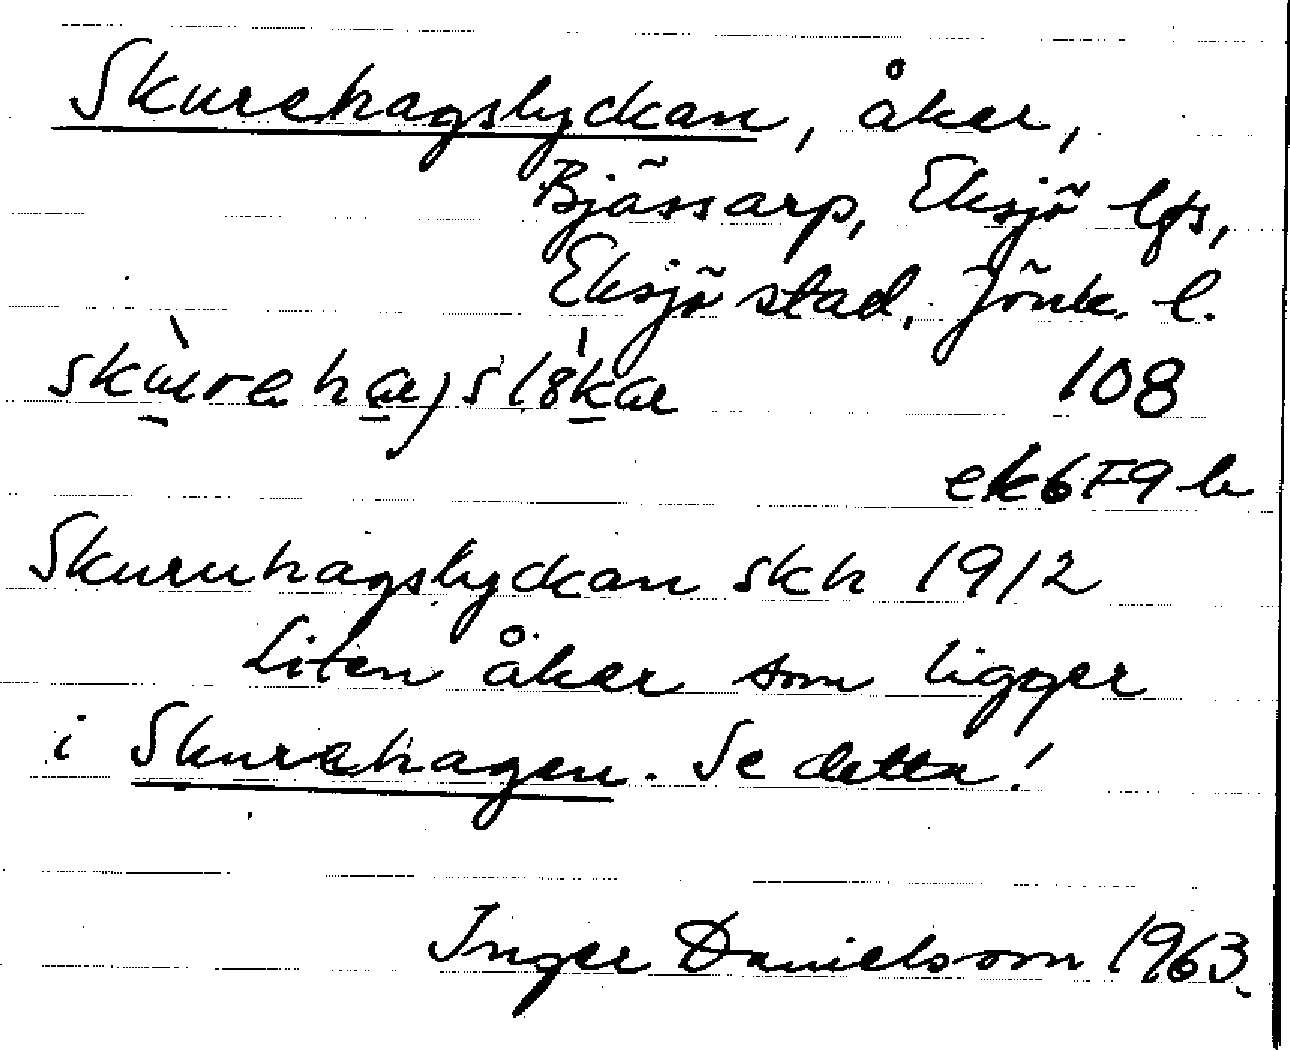 Skurehagslyckan, åker,
Bjässarp, Eksjö lfs,
Eksjö stad, Jönk. l.
108
ek 6F9 b
Skuruhagslyckan skh 1912
Liten åker som ligger
i Skurehagen. Se detta!
Inger Danielsson 1963.